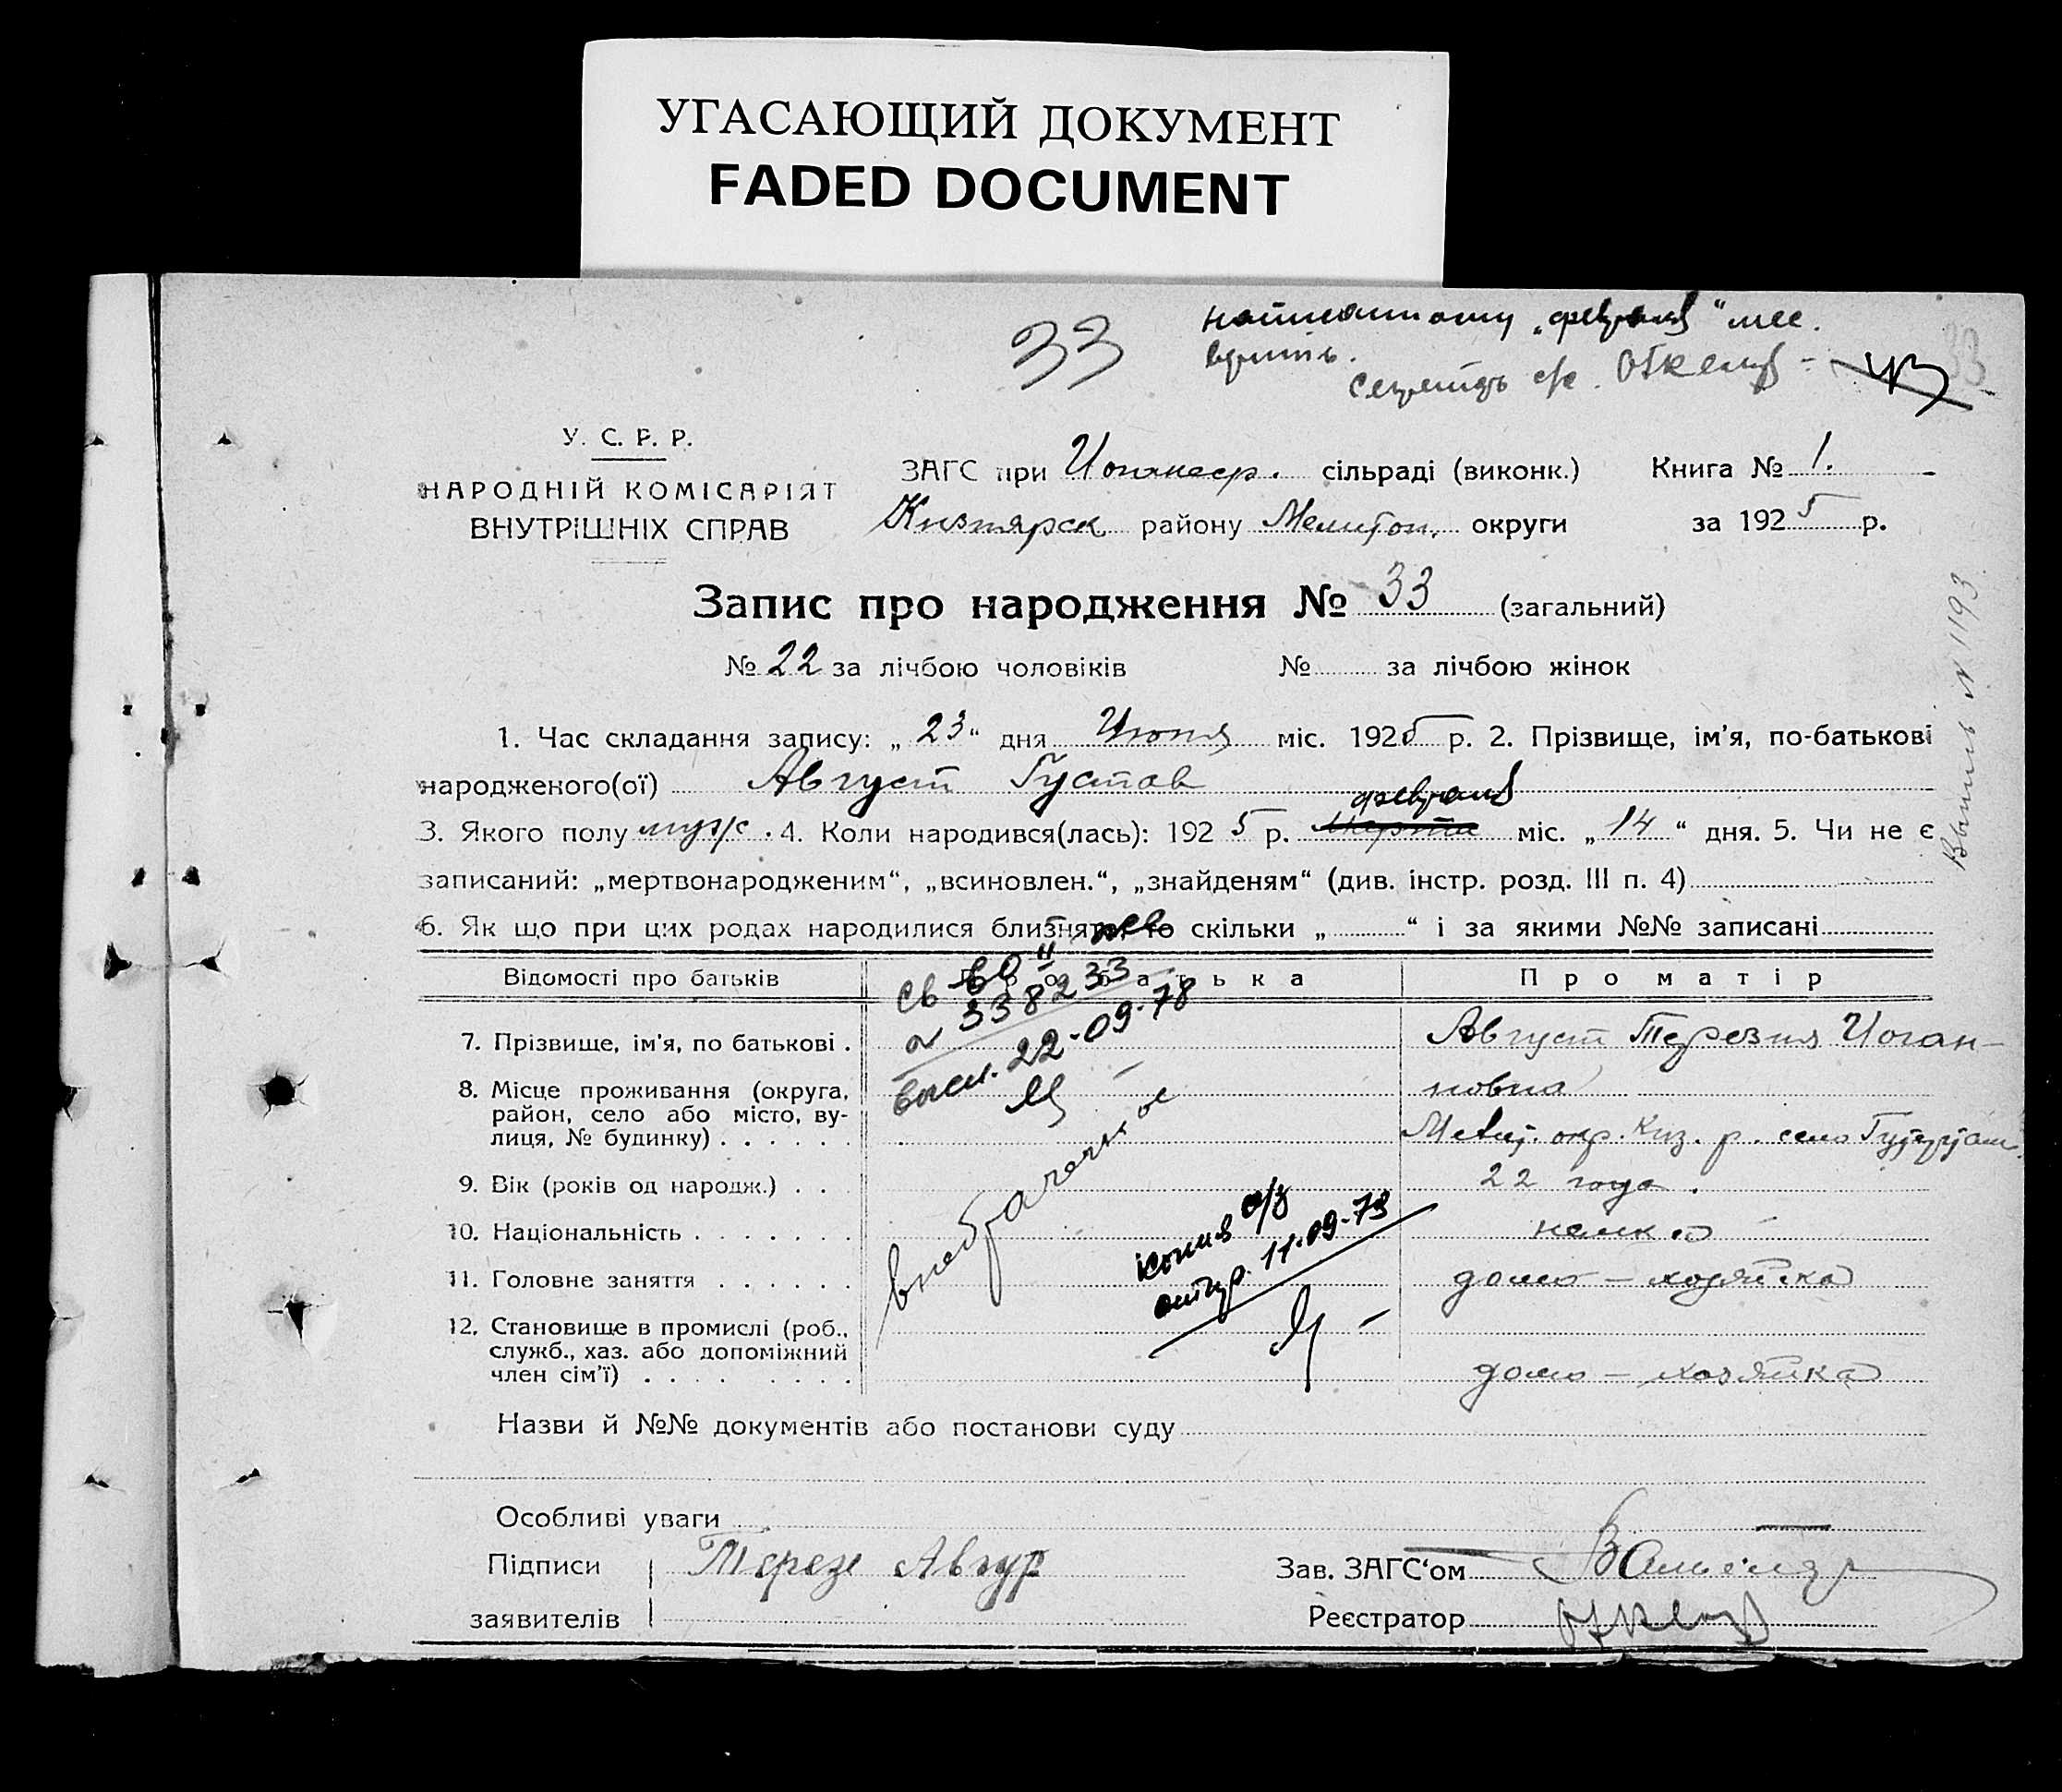 УГАСАЮЩИЙ ДОКУМЕНТ
FADED DOCUMENT
33
написанному „февраля“ мес.
верить.
33
У. С. Р. Р.
НАРОДНІЙ КОМІСАРІЯТ
ВНУТРІШНІХ СПРАВ
ЗАГС при сільраді (виконк.) Книга № 1.
району Мелитоп. округи за 1925 р.
Запис про народження № 33 (загальний)
№ 22 за лічбою чоловіків № за лічбою жінок
1. Час складання запису: „23“ дня міс. 1925 р. 2. Прізвище, ім’я, по-батькові
народженого(ої) Август Густав
февраля
3. Якого полу муж. 4. Коли народився(лась): 1925 р. Марта міс. „14“ дня. 5. Чи не є
записаний: „мертвонародженим“, „всиновлен.“, „знайденям“ (див. інстр. розд. III п. 4)
6. Як що при цих родах народилися близнята, то скільки „ “ і за якими №№ записані
Відомості про батьків Про батька Про матір
св во II
338233
22-09-78
7. Прізвище, ім’я, по батькові . Август Терезия Иоган-
новна
8. Місце проживання (округа,
район, село або місто, ву-
лиця, № будинку) . . . . . . окр. Киз. р. село
9. Вік (років од народж.) . . . 22 года.
10. Національність . . . . . . . немка
11. Головне заняття . . . . . . домо-хозяйка
12. Становище в промислі (роб.,
служб., хаз. або допоміжний
член сім’ї) . . . . . . . . домо-хозяйка
внебрачное
копия а/з
отпр. 11-09-78
Назви й №№ документів або постанови суду
Особливі уваги
Підписи
заявителів
Зав. ЗАГС‘ом
Реєстратор
№ 1193